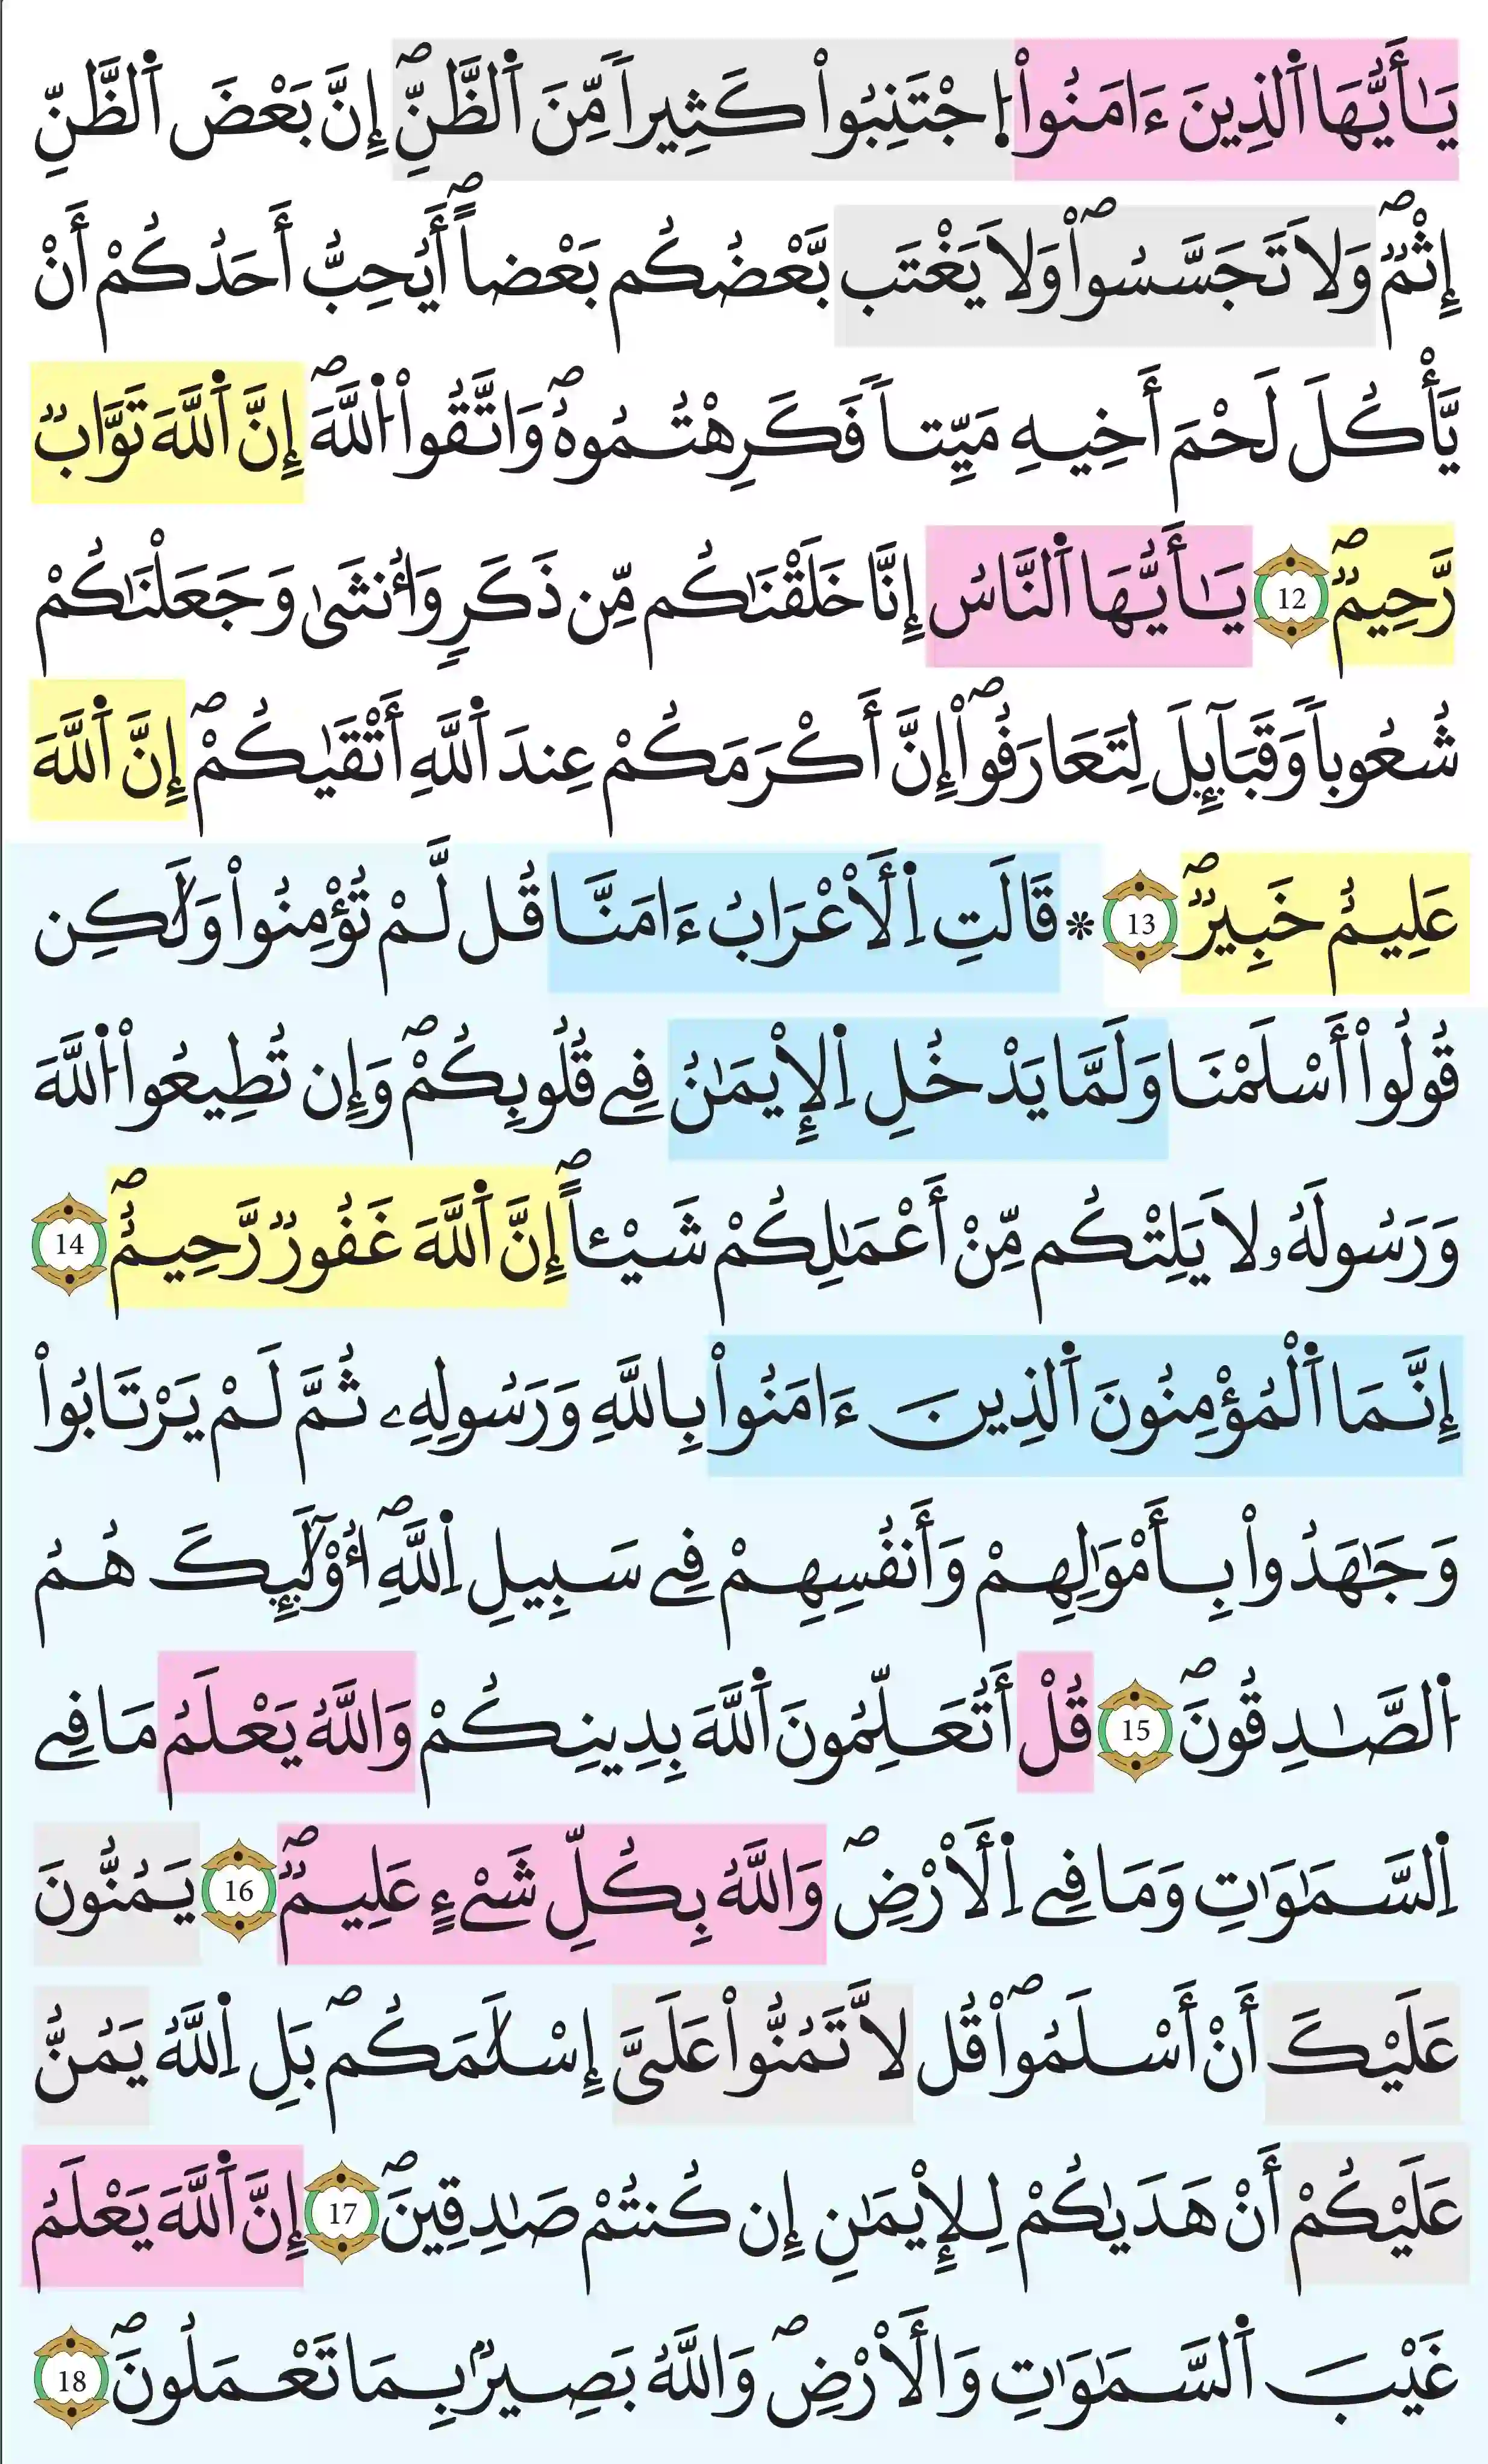 يَٰأَيُّهَا اَ۬لذِينَ ءَامَنُواْ اُ۪جْتَنِبُواْ كَثِيراٗ مِّنَ اَ۬لظَّنِّۖ إِنَّ بَعْضَ اَ۬لظَّنِّ
إِثْمٞۖ وَلَا تَجَسَّسُواْۖ وَلَا يَغْتَب بَّعْضُكُم بَعْضاًۖ أَيُحِبُّ أَحَدُكُمْ أَنْ
يَّأْكُلَ لَحْمَ أَخِيهِ مَيِّتاٗ فَكَرِهْتُمُوهُۖ وَاتَّقُواْ اُ۬للَّهَۖ إِنَّ اَ۬للَّهَ تَوَّابٞ
رَّحِيمٞۖ 12 يَٰأَيُّهَا اَ۬لنَّاسُ إِنَّا خَلَقْنَٰكُم مِّن ذَكَرٖ وَأُنثَىٰ وَجَعَلْنَٰكُمْ
شُعُوباٗ وَقَبَآئِلَ لِتَعَارَفُواْۖ إِنَّ أَكْرَمَكُمْ عِندَ اَ۬للَّهِ أَتْقَىٰكُمْۖ إِنَّ اَ۬للَّهَ
عَلِيمٌ خَبِيرٞۖ 13 * قَالَتِ اِ۬لَأعْرَابُ ءَامَنَّا قُل لَّمْ تُؤْمِنُواْ وَلَٰكِن
قُولُواْ أَسْلَمْنَا وَلَمَّا يَدْخُلِ اِ۬لِايمَٰنُ فِے قُلُوبِكُمْۖ وَإِن تُطِيعُواْ اُ۬للَّهَ
وَرَسُولَهُۥ لَا يَلِتْكُم مِّنْ أَعْمَٰلِكُمْ شَيْـٔاًۖ إِنَّ اَ۬للَّهَ غَفُورٞ رَّحِيمٌۖ 14
إِنَّمَا اَ۬لْمُؤْمِنُونَ اَ۬لذِينَ ءَامَنُواْ بِاللَّهِ وَرَسُولِهِۦ ثُمَّ لَمْ يَرْتَابُواْ
وَجَٰهَدُواْ بِأَمْوَٰلِهِمْ وَأَنفُسِهِمْ فِے سَبِيلِ اِ۬للَّهِۖ أُوْلَٰٓئِكَ هُمُ
اُ۬لصَّٰدِقُونَۖ 15 قُلْ أَتُعَلِّمُونَ اَ۬للَّهَ بِدِينِكُمْ وَاللَّهُ يَعْلَمُ مَا فِے
اِ۬لسَّمَٰوَٰتِ وَمَا فِے اِ۬لَارْضِۖ وَاللَّهُ بِكُلِّ شَےْءٍ عَلِيمٞۖ 16 يَمُنُّونَ
عَلَيْكَ أَنْ أَسْلَمُواْۖ قُل لَّا تَمُنُّواْ عَلَيَّ إِسْلَٰمَكُمۖ بَلِ اِ۬للَّهُ يَمُنُّ
عَلَيْكُمْ أَنْ هَدَىٰكُمْ لِلِايمَٰنِ إِن كُنتُمْ صَٰدِقِينَۖ 17 إِنَّ اَ۬للَّهَ يَعْلَمُ
غَيْبَ اَ۬لسَّمَٰوَٰتِ وَالَارْضِۖ وَاللَّهُ بَصِيرُۢ بِمَا تَعْمَلُونَۖ 18